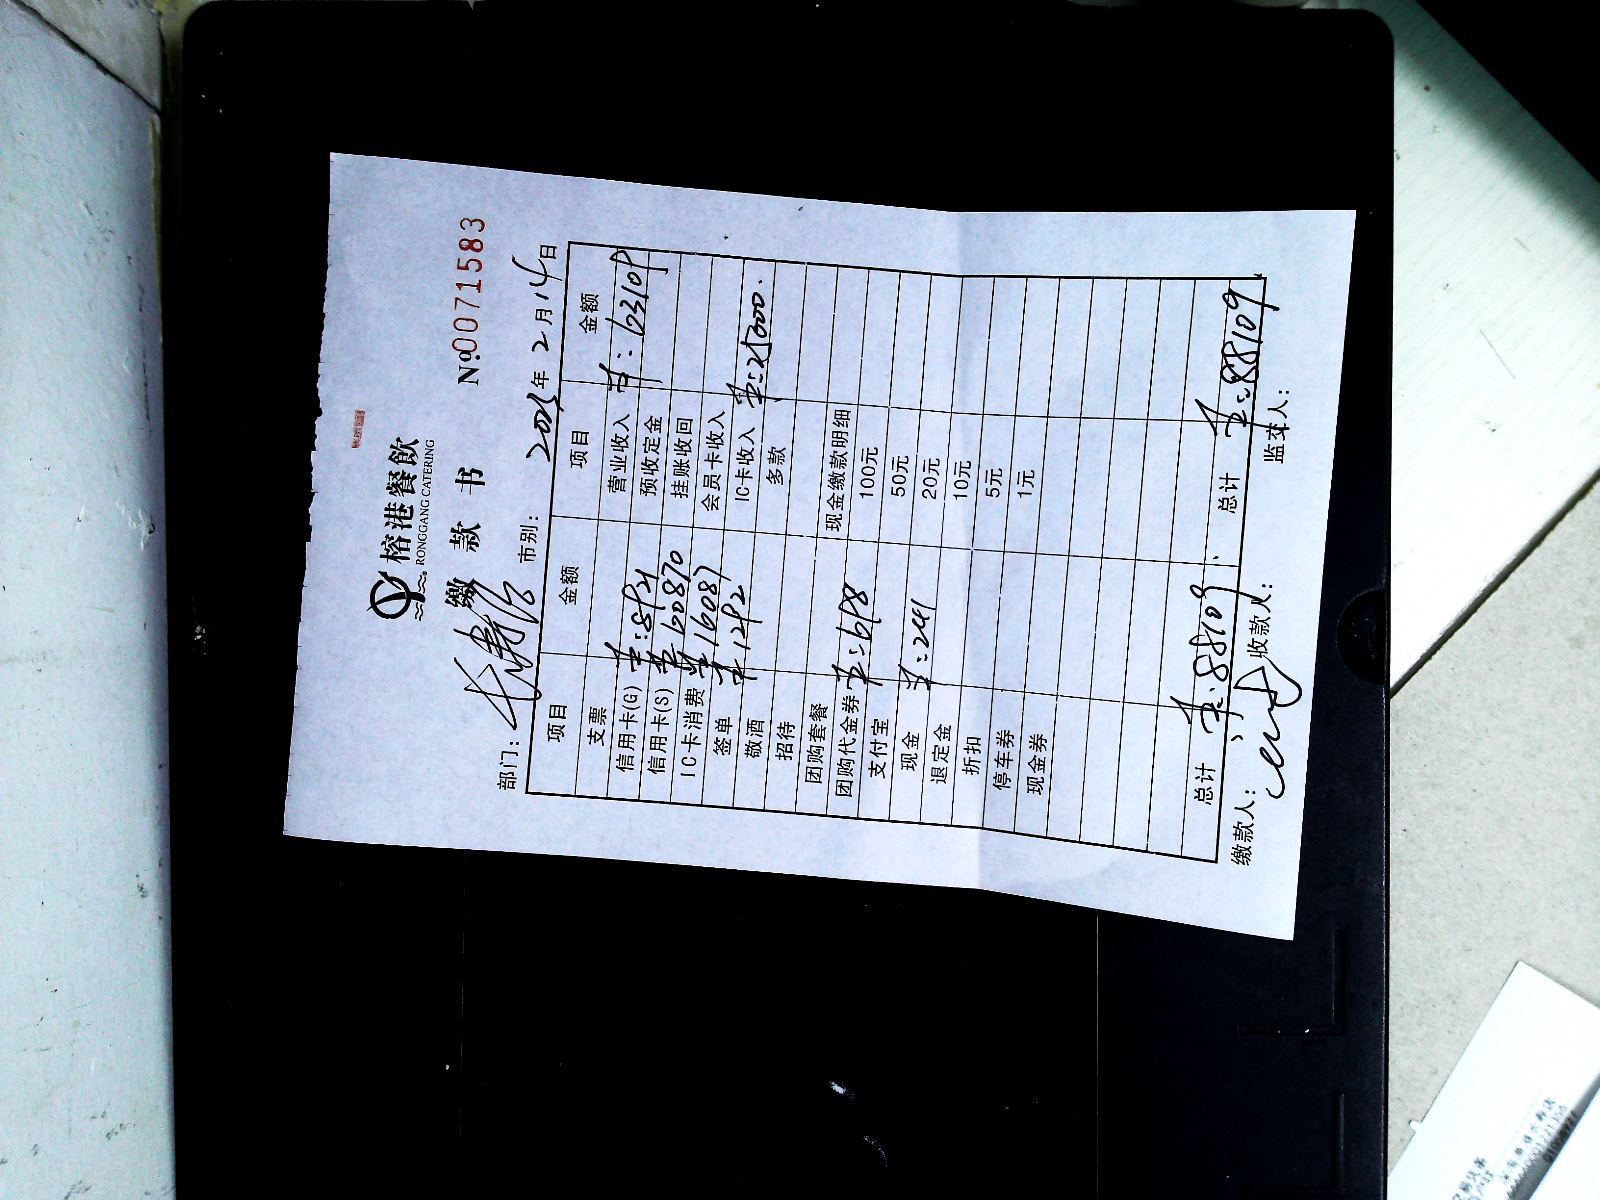 榕港餐飲
RONGGANG CATERING
缴 款 书 №0071583
部门： 市别： 2015年 2月14日
项目 金额 项目 金额
支票 营业收入 ¥:63109
信用卡(G) ¥:8921 预收定金
信用卡(S) ¥60870 挂账收回
IC卡消费 ¥16087 会员卡收入
签单 ¥1292 IC卡收入 ¥:25000.
敬酒 多款
招待
团购套餐 现金缴款明细
团购代金券 ¥:698 100元
支付宝 50元
现金 ¥:241 20元
退定金 10元
折扣 5元
停车券 1元
现金券
总计 ¥:88109 总计 ¥:88109
缴款人： 收款人： 监交人：